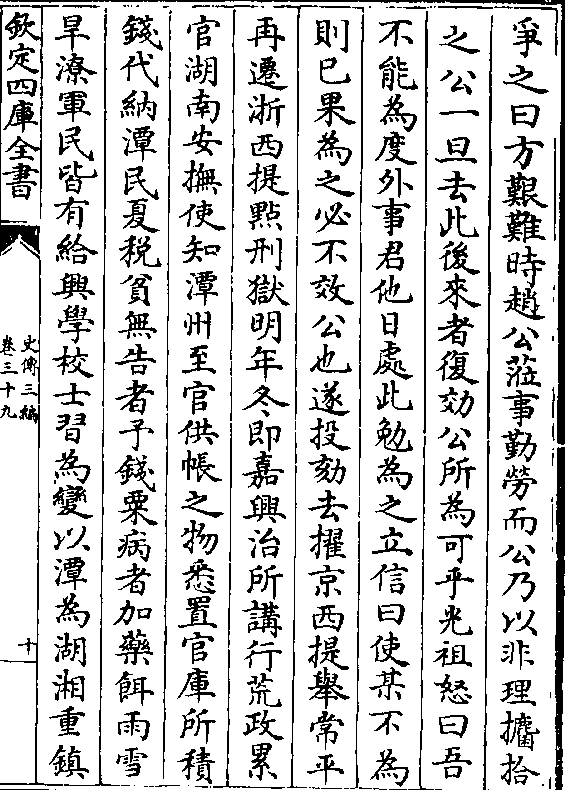 爭之曰方艱難時趙公蒞事勤勞而公乃以非理攟拾
之公一旦去此後來者復効公所為可乎光祖怒曰吾
不能為度外事君他日處此勉為之立信曰使某不為
則已果為之必不效公也遂投劾去擢京西提舉常平
再遷浙西提點刑獄明年冬即嘉興治所講行荒政累
官湖南安撫使知潭州至官供帳之物悉置官庫所積
錢代納潭民夏稅貧無告者予錢粟病者加藥餌雨雪
旱潦軍民皆有給興學校士習為變以潭為湖湘重鎮
欽定四庫全書
史傳三編
卷三十九
十